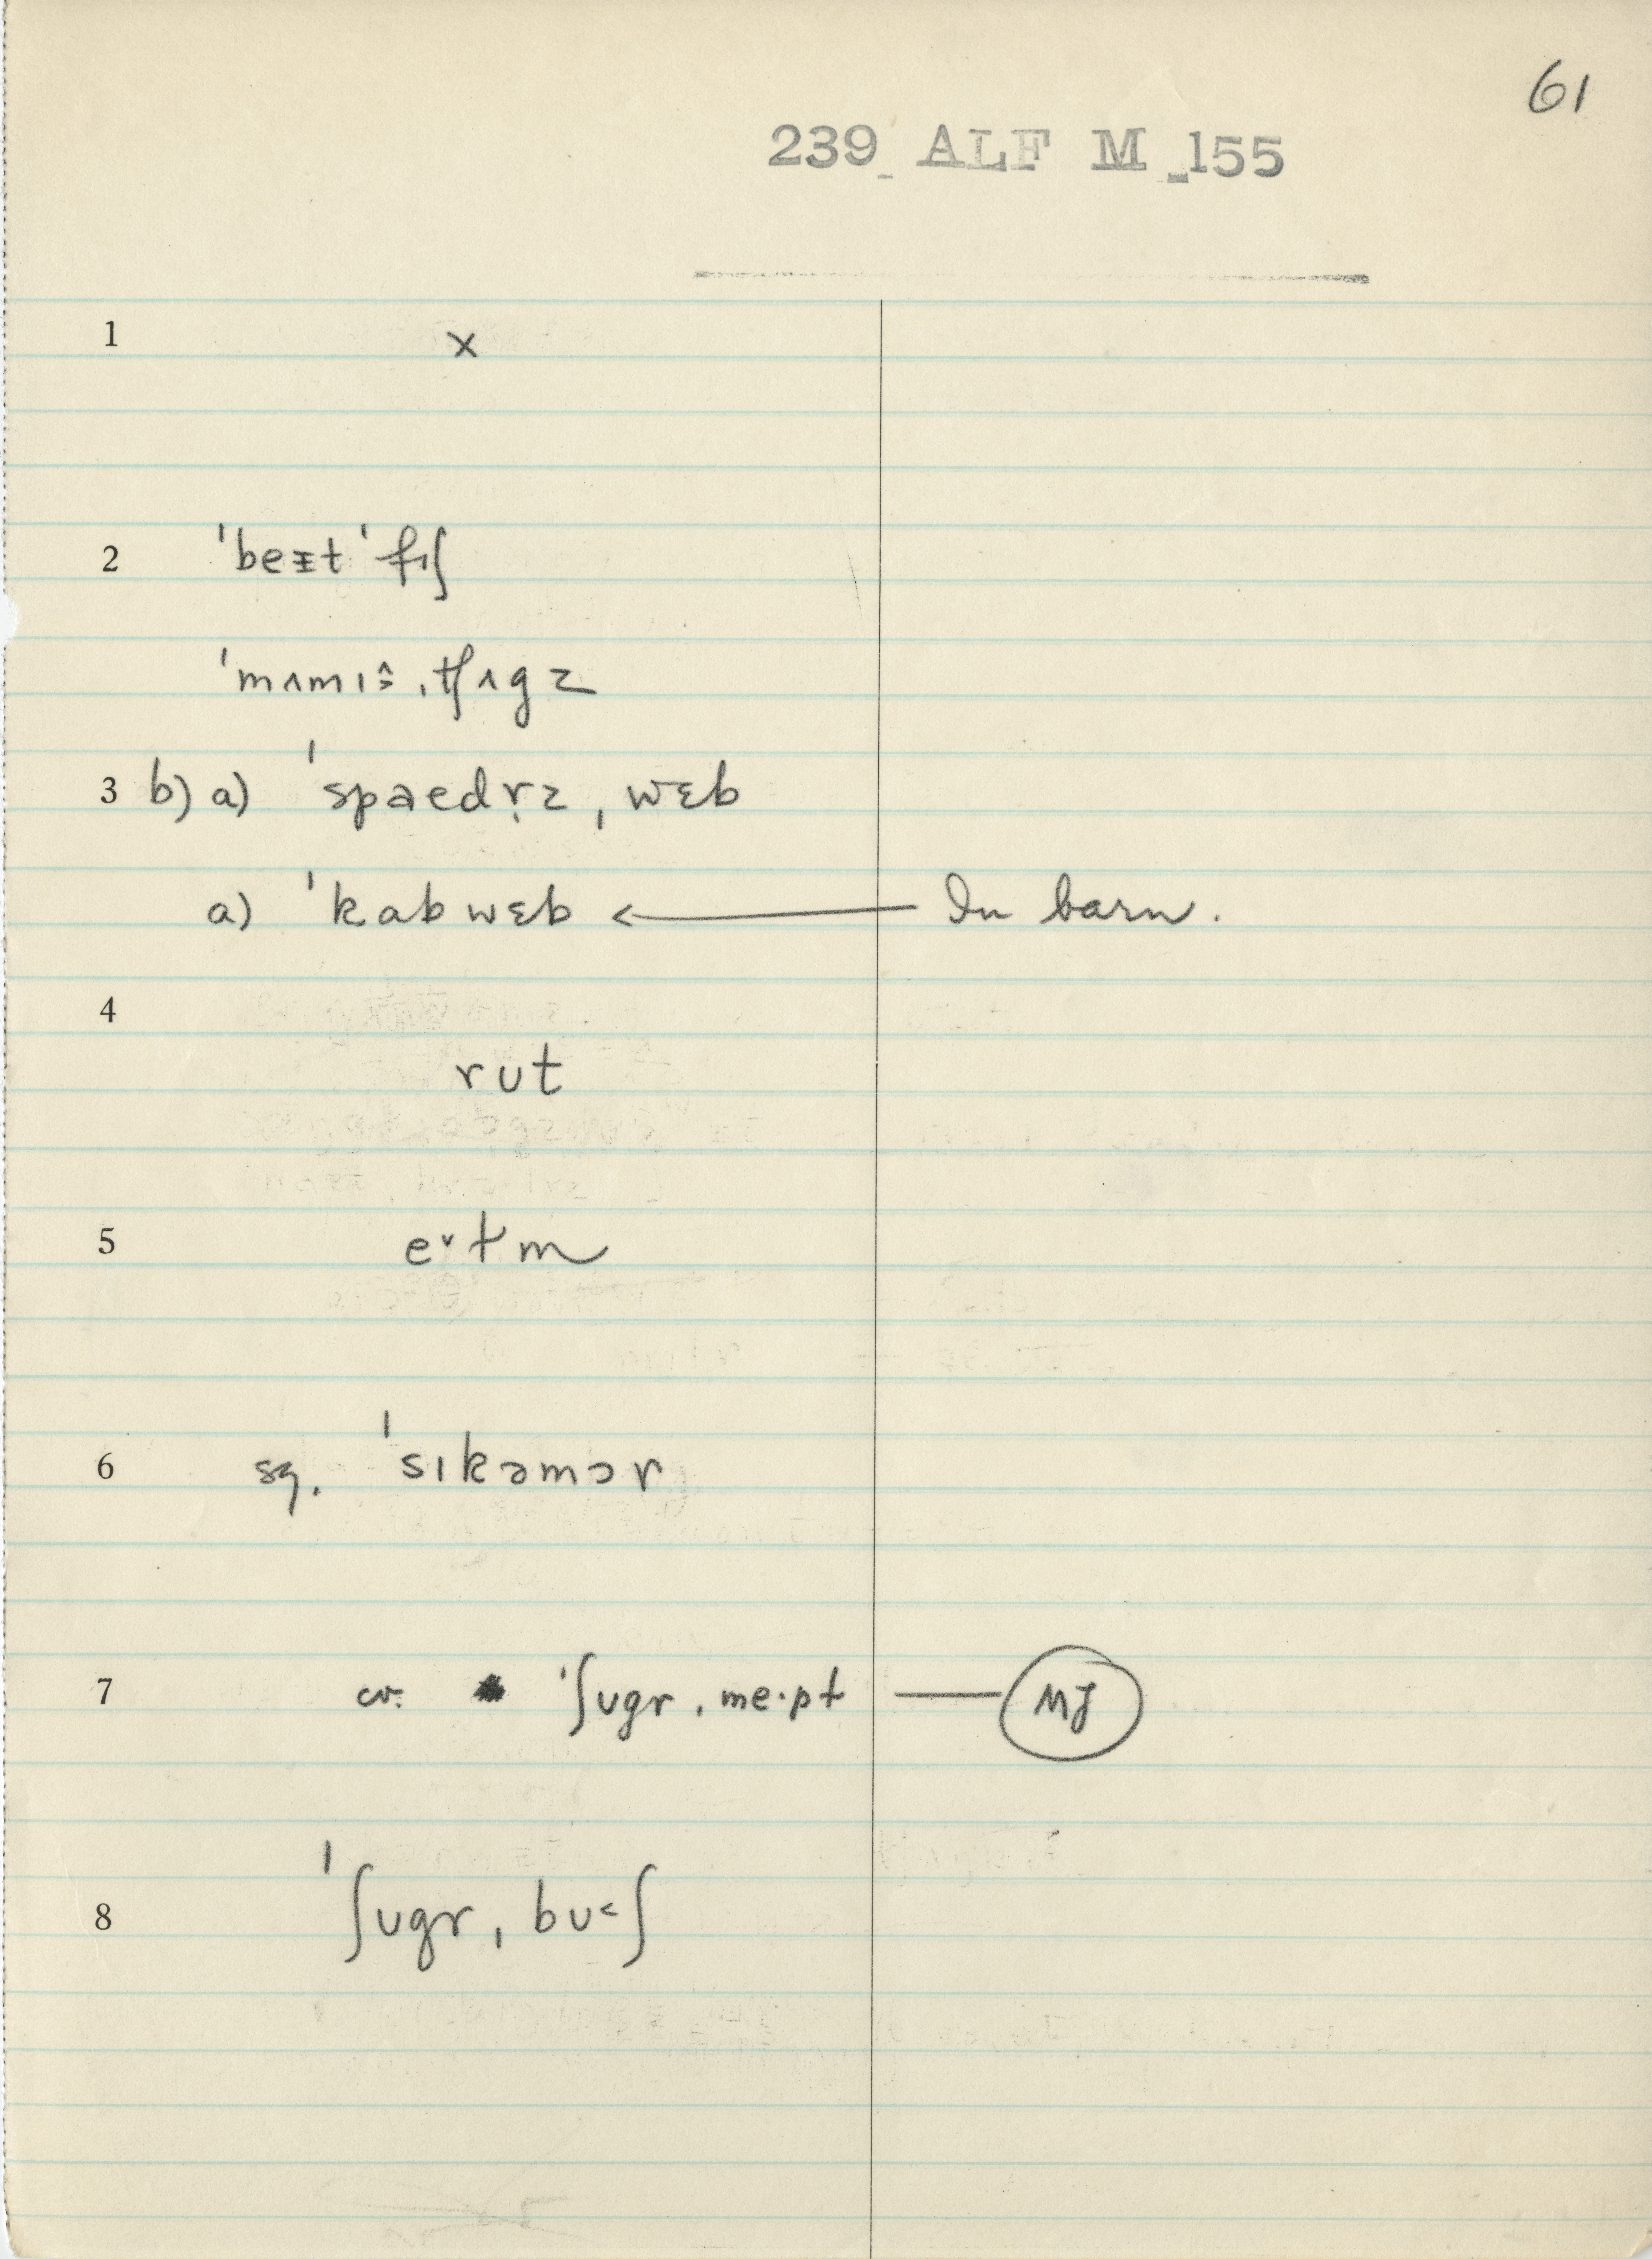 61
239 ALF M 155
1 x
2 ˈbeᵻt ˈfɪʃ
ˈmɪnɪˑ ˌtʃʌgz
3 b) a) ˈspaedr̩z ˌwɛb
a) ˈkabwɛb ← In barn.
4
rut
5 e˅ɫm
6 sg. ˈsɪkəmɔr
7 cv. ˈʃʊgr ˌme·pɫ — MJ
8 ˈʃʊgr ˌbʊ˂ʃ